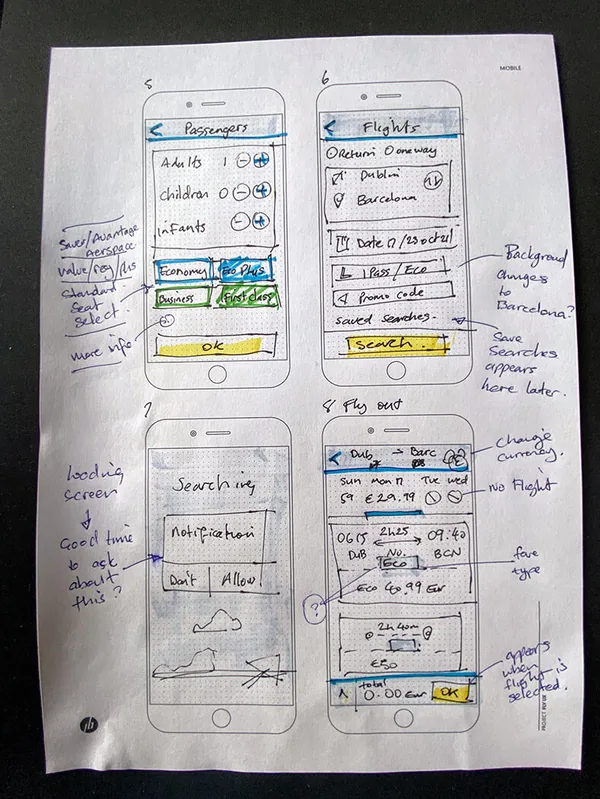 MOBILE.
5
Passengers
Adults 1
Children 0
infants
Economy Eco Plus
Business First class
OK
Saver/Avantage
Aerspace
Value/reg/plus
Standard
Seat
select.
more info
6
Flights
Return One way
Dublin
Barcelona
Date 17/23 oct 21
1 Pass / Eco
Promo code
saved searches.
search.
Background
changes
to
Barcelona?
Save
Searches
appears
here later.
7
Searching
notification
Don't Allow
loading
screen
Good time
to ask
about
this?
8 Fly out
Dub → Barc
Sun mon 17 Tue Wed
59 €29.99
0615 2h25 09:40
DUB No. BCN
Eco
Eco 40.99 Eur
2h 40m
€50
total
0.00 Eur OK
change
currency.
No Flight
fare
type
?
appears
when
flight is
selected.